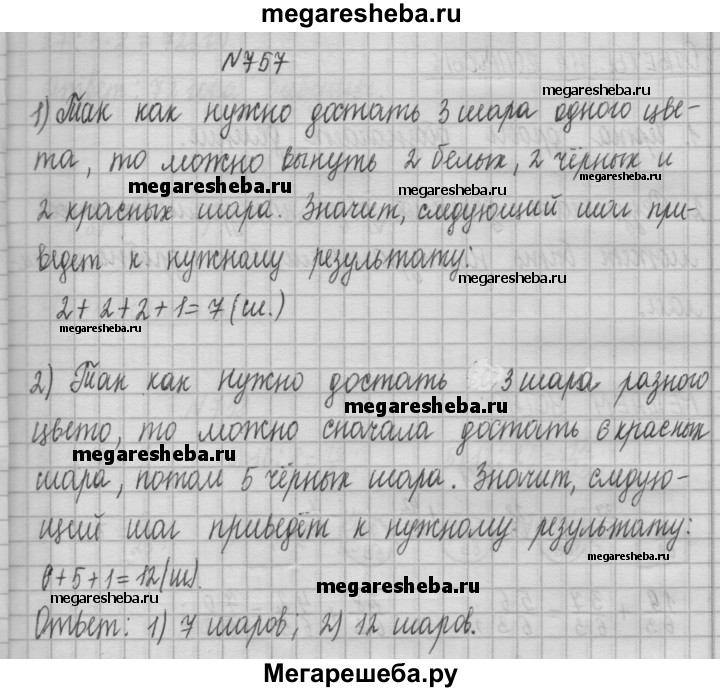 megaresheba.ru
№757
1) Так как нужно достать 3 шара одного цве-
megaresheba.ru
та, то можно вынуть 2 белых, 2 чёрных и
megaresheba.ru megaresheba.ru megaresheba.ru
2 красных шара. Значит, следующий шаг при-
ведет к нужному результату:
megaresheba.ru
2+2+2+1=7 (ш.)
megaresheba.ru
2) Так как нужно достать 3 шара разного
megaresheba.ru
цвето, то можно сначала достать 6 красных
megaresheba.ru
шара, потом 5 чёрных шара. Значит, следую-
щий шаг приведёт к нужному результату:
megaresheba.ru
6+5+1=12(ш).
megaresheba.ru megaresheba.ru
Ответ: 1) 7 шаров; 2) 12 шаров.
Мегарешеба.ру